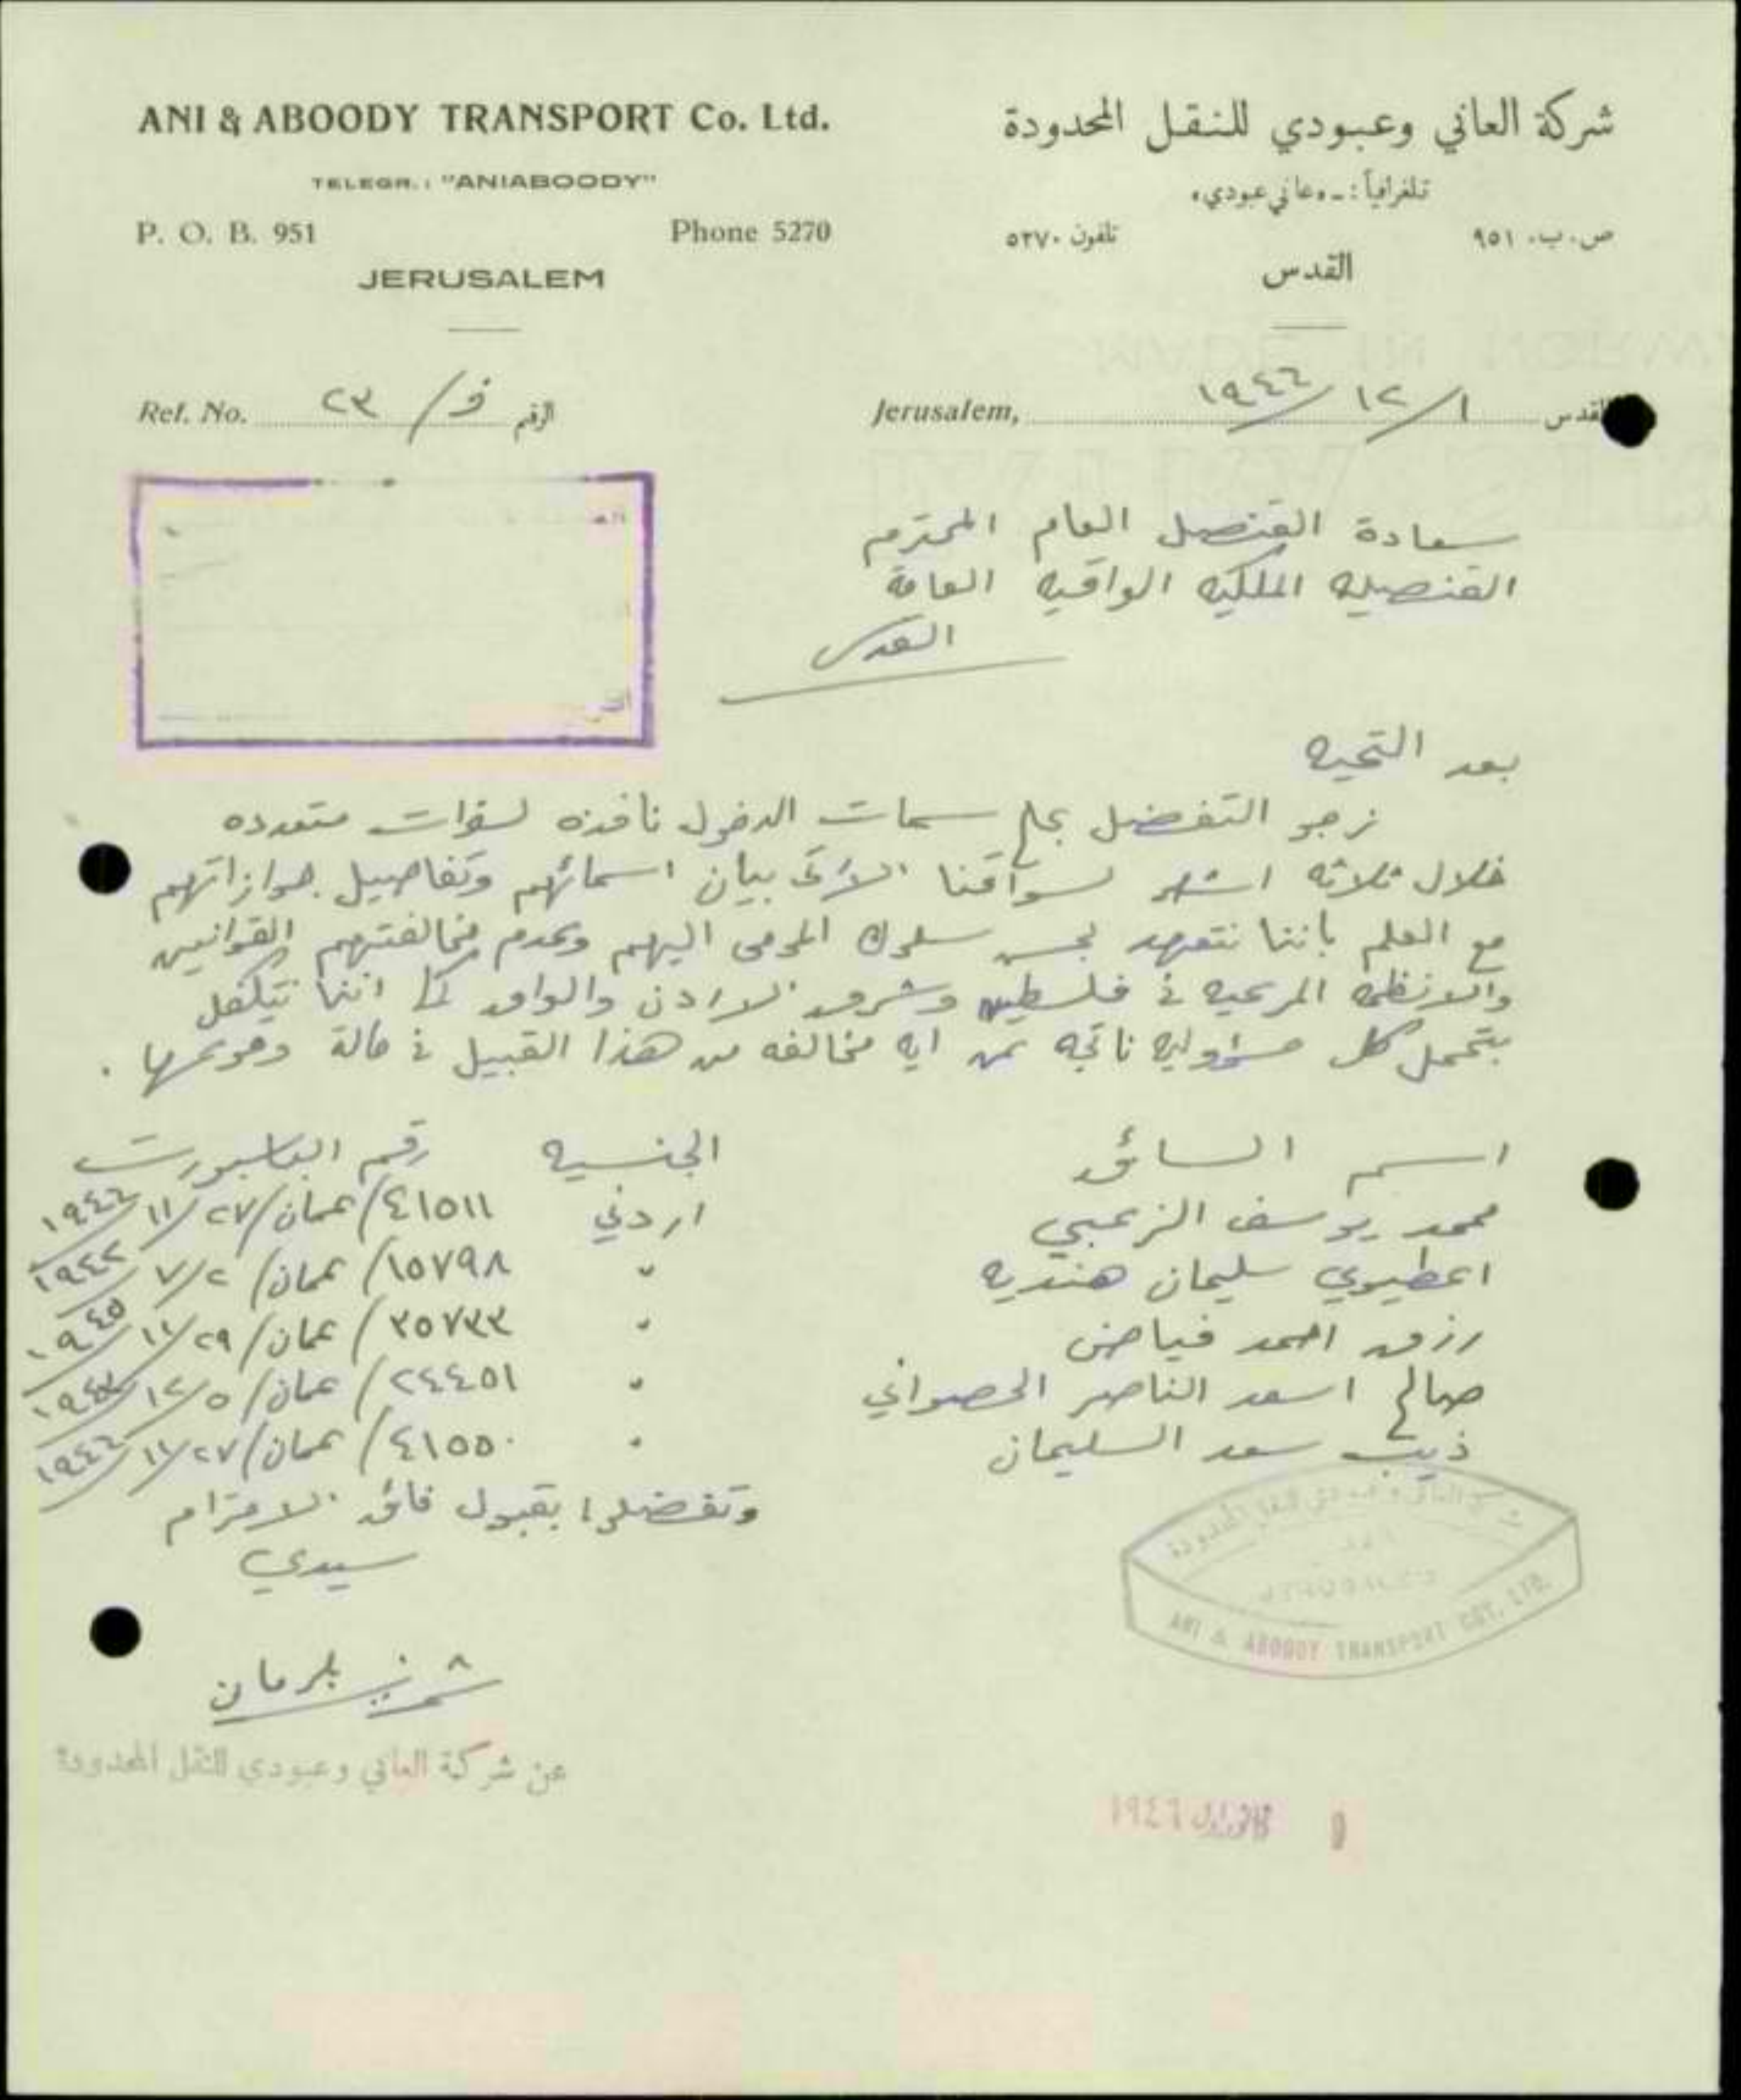 ANI & ABOODY TRANSPORT Co. Ltd.
TELEGR.: "ANIABOODY"
P. O. B. 951 Phone 5270
JERUSALEM
شركة العاني وعبودي للنقل المحدودة
تلغرافياً :ـ «عاني عبودي»
ص. ب. ٩٥١ تلفون ٥٢٧٠
القدس
Ref. No. ٢٣ / ف الرقم
Jerusalem, ١٩٤٦/١٢/١ القدس
سعادة القنصل العام المحترم
القنصليه الملكيه العراقيه العامة
القدس
بعد التحيه
نرجو التفضل بمنح سمات الدخول نافذه لسفرات متعدده
خلال ثلاثه اشهر لسواقنا الاتى بيان اسمائهم وتفاصيل جوازاتهم
مع العلم باننا نتعهد بحسن سلوك المومى اليهم وعدم مخالفتهم القوانين
والانظمه المرعيه في فلسطين وشرق الاردن والعراق كما اننا نتكفل
بتحمل كل مسؤوليه ناتجه عن ايه مخالفه من هذا القبيل في حالة وقوعها .
اسم السائق الجنسيه رقم الباسبورت
محمد يوسف الزعبي اردني ٤١٥١١/عمان/٢٧/١١/١٩٤٦
اعطيوي سليمان هنديه " ١٥٧٩٨/عمان/٢/٧/١٩٤٢
رزق احمد فياض " ٣٥٧٣٣/عمان/٢٩/١١/١٩٤٥
صالح اسعد الناصر الحصواني " ٢٤٤٥١/عمان/٥/١٢/
ذيب سعد السليمان " ٤١٥٥٠/عمان/٢٧/١١/١٩٤٦
وتفضلوا بقبول فائق الاحترام
سيدي
عن شركة العاني وعبودي للنقل المحدودة
ANI & ABOODY TRANSPORT COY. LTD.
١٩٤٦